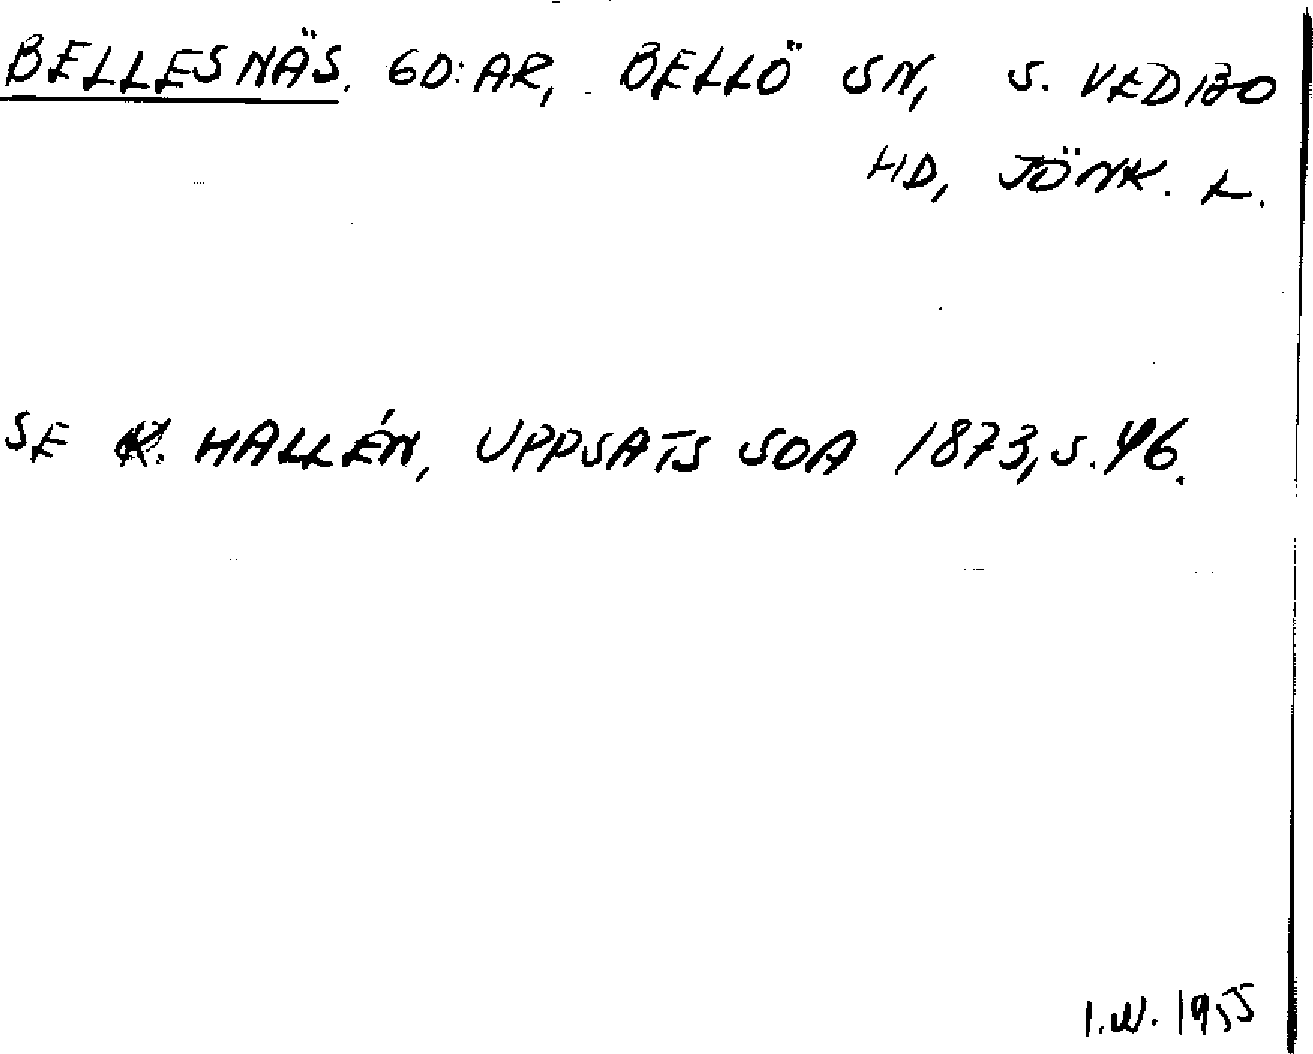 BELLESNÄS. GD:AR, BELLÖ SN, S. VEDBO
HD, JÖNK. L.
SE K. HALLÉN, UPPSATS SOA 1873, S. 46.
I.W. 1955